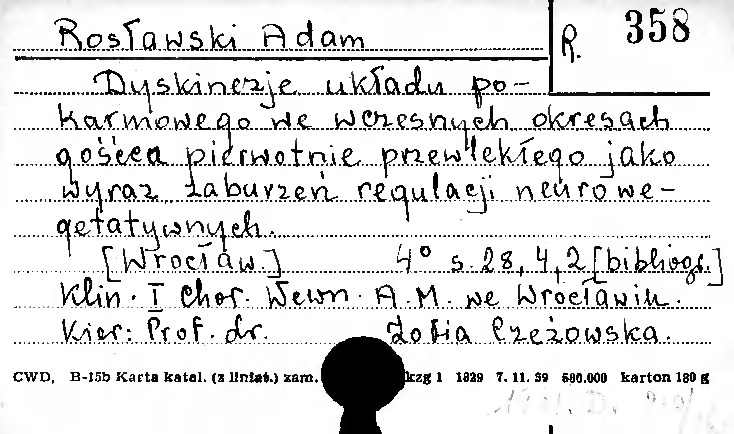 Rosławski Adam
R. 358
Dyskinezje układu po-
karmowego we wczesnych okresach
gośćca pierwotnie przewlekłego jako
wyraz zaburzeń regulacji neurowe-
getatywnych.
[Wrocław.] 4° s. 28, 4, 2 [bibliogr.]
Klin. I Chor. Wewn. A.M. we Wrocławiu.
Kier: Prof. dr. Zofia Czeżowska.
CWD, B-15b Karta katal. (z liniat.) zam. kzg 1 1829 7. 11. 59 500.000 karton 180 g